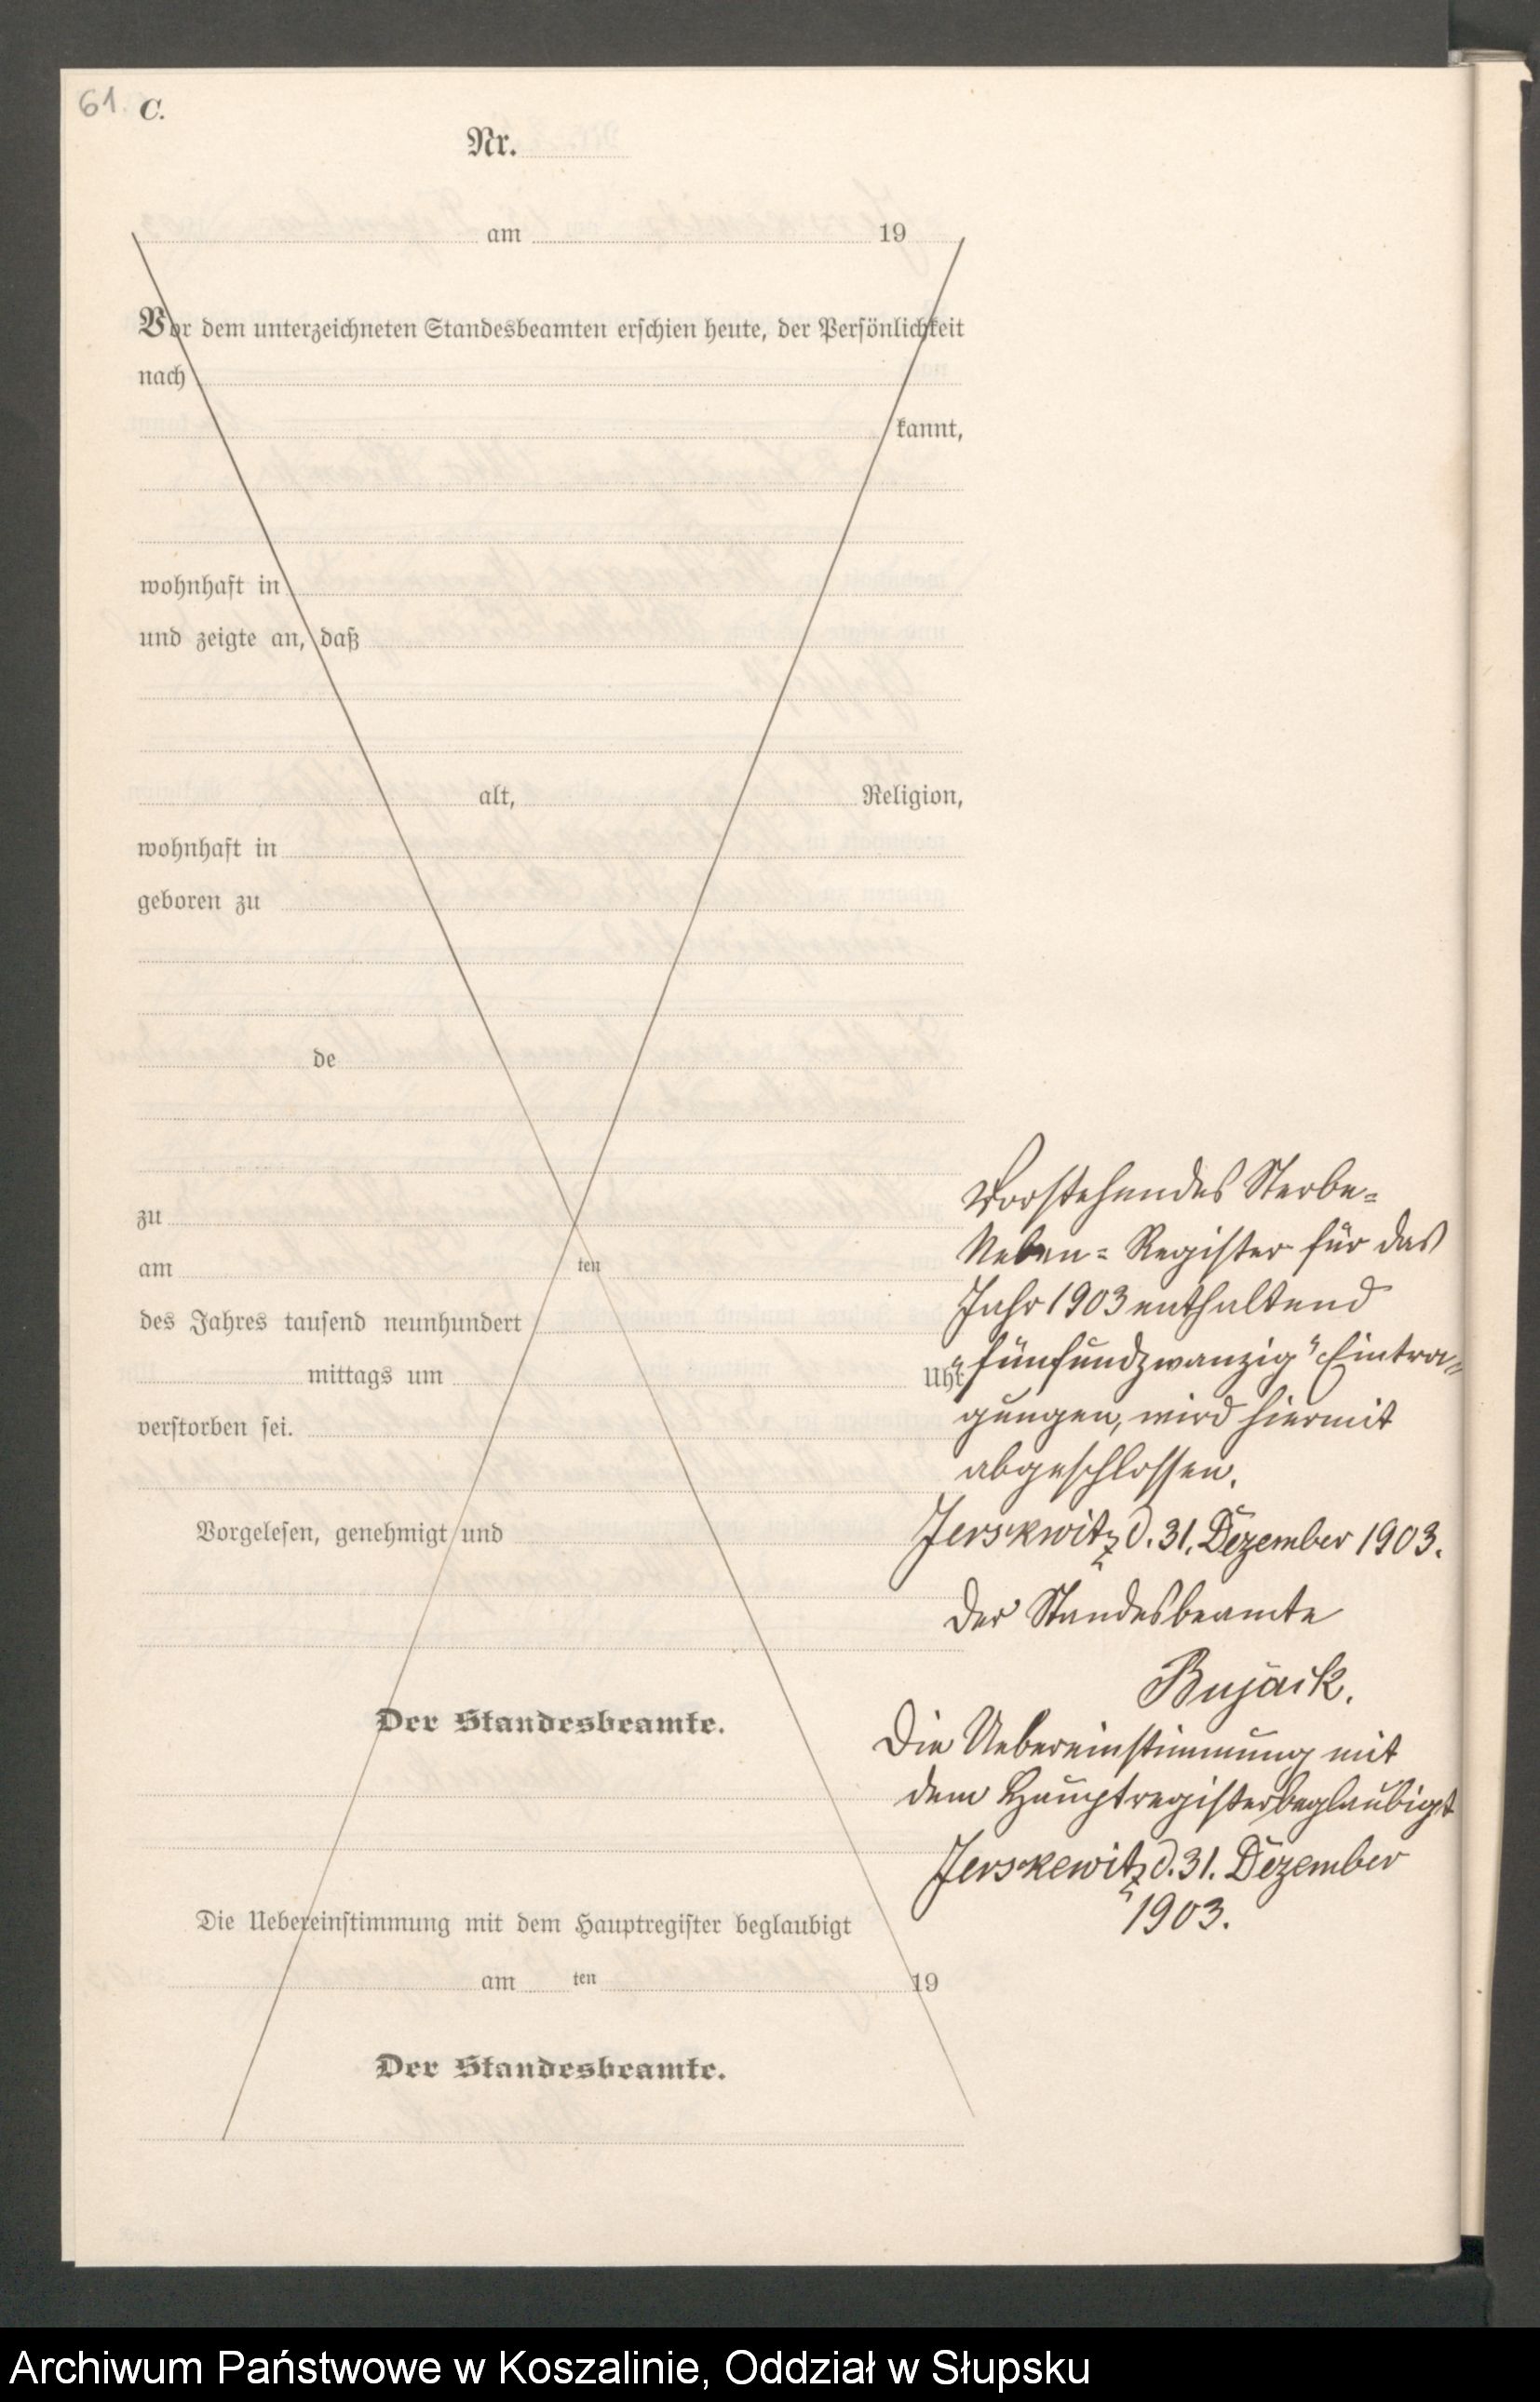 61. C.
Nr.
am 19
Vor dem unterzeichneten Standesbeamten erschien heute, der Persönlichkeit
nach
kannt,
wohnhaft in
und zeigte an, daß
alt, Religion,
wohnhaft in
geboren zu
de
zu
am ten
des Jahres tausend neunhundert
mittags um Uhr
verstorben sei.
Vorgelesen, genehmigt und
Der Standesbeamte.
Die Uebereinstimmung mit dem Hauptregister beglaubigt
am ten 19
Der Standesbeamte.
Vorstehendes Sterbe-
Neben-Register für das
Jahr 1903 enthaltend
"fünfundzwanzig" Eintra-
gungen, wird hiermit
abgeschlossen.
Jerskwitz d. 31. Dezember 1903.
Der Standesbeamte
Bujack.
Die Uebereinstimmung mit
dem Hauptregister beglaubigt
Jerskewitz d. 31. Dezember
1903.
Archiwum Państwowe w Koszalinie, Oddział w Słupsku